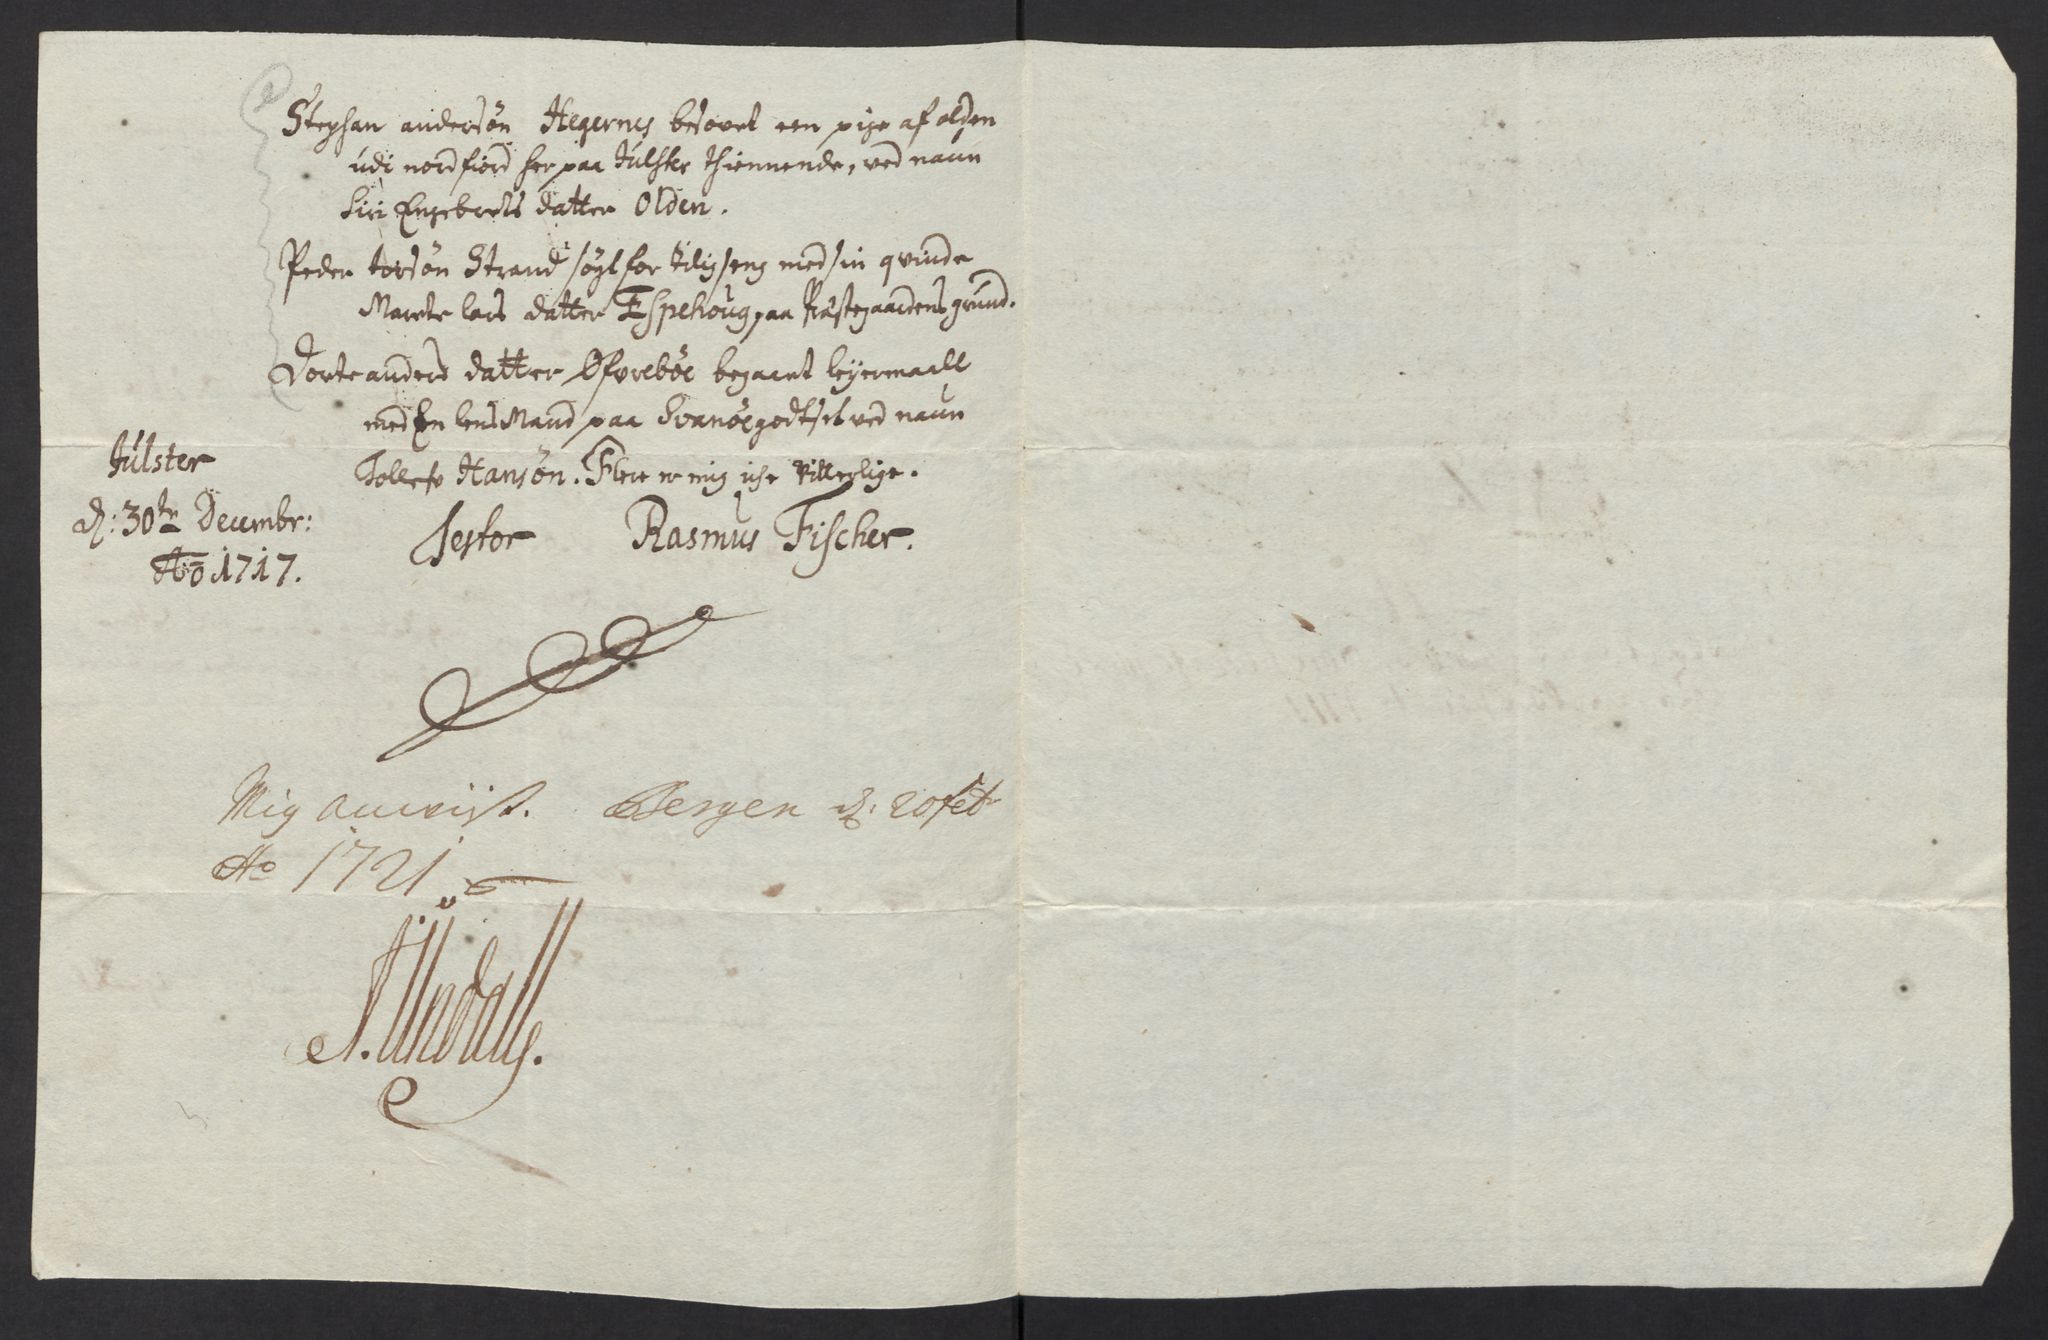 Stephan andersøn Hegernes besovet een pige af olden
udi nordfiord her paa Iulster thiennende, ved naun
Siri Engebrets datter Olden.
Peder torsøn Strand søgt for tilig seng med sin qvinde
Marete lars datter Espehoug paa Præstegaardens grund.
Dorte anders datter Øfvrebøe begaaet leyermaall
med En lensMand paa Svanøe godtset ved naun
Tollef Hansøn. Flere er mig iche vitterlige.
Iulster
d: 30te Decembr:
Ao 1717.
Testor Rasmus Fischer.
Mig anviist. Bergen d: 20 feb
Ao 1721
A. Undall.